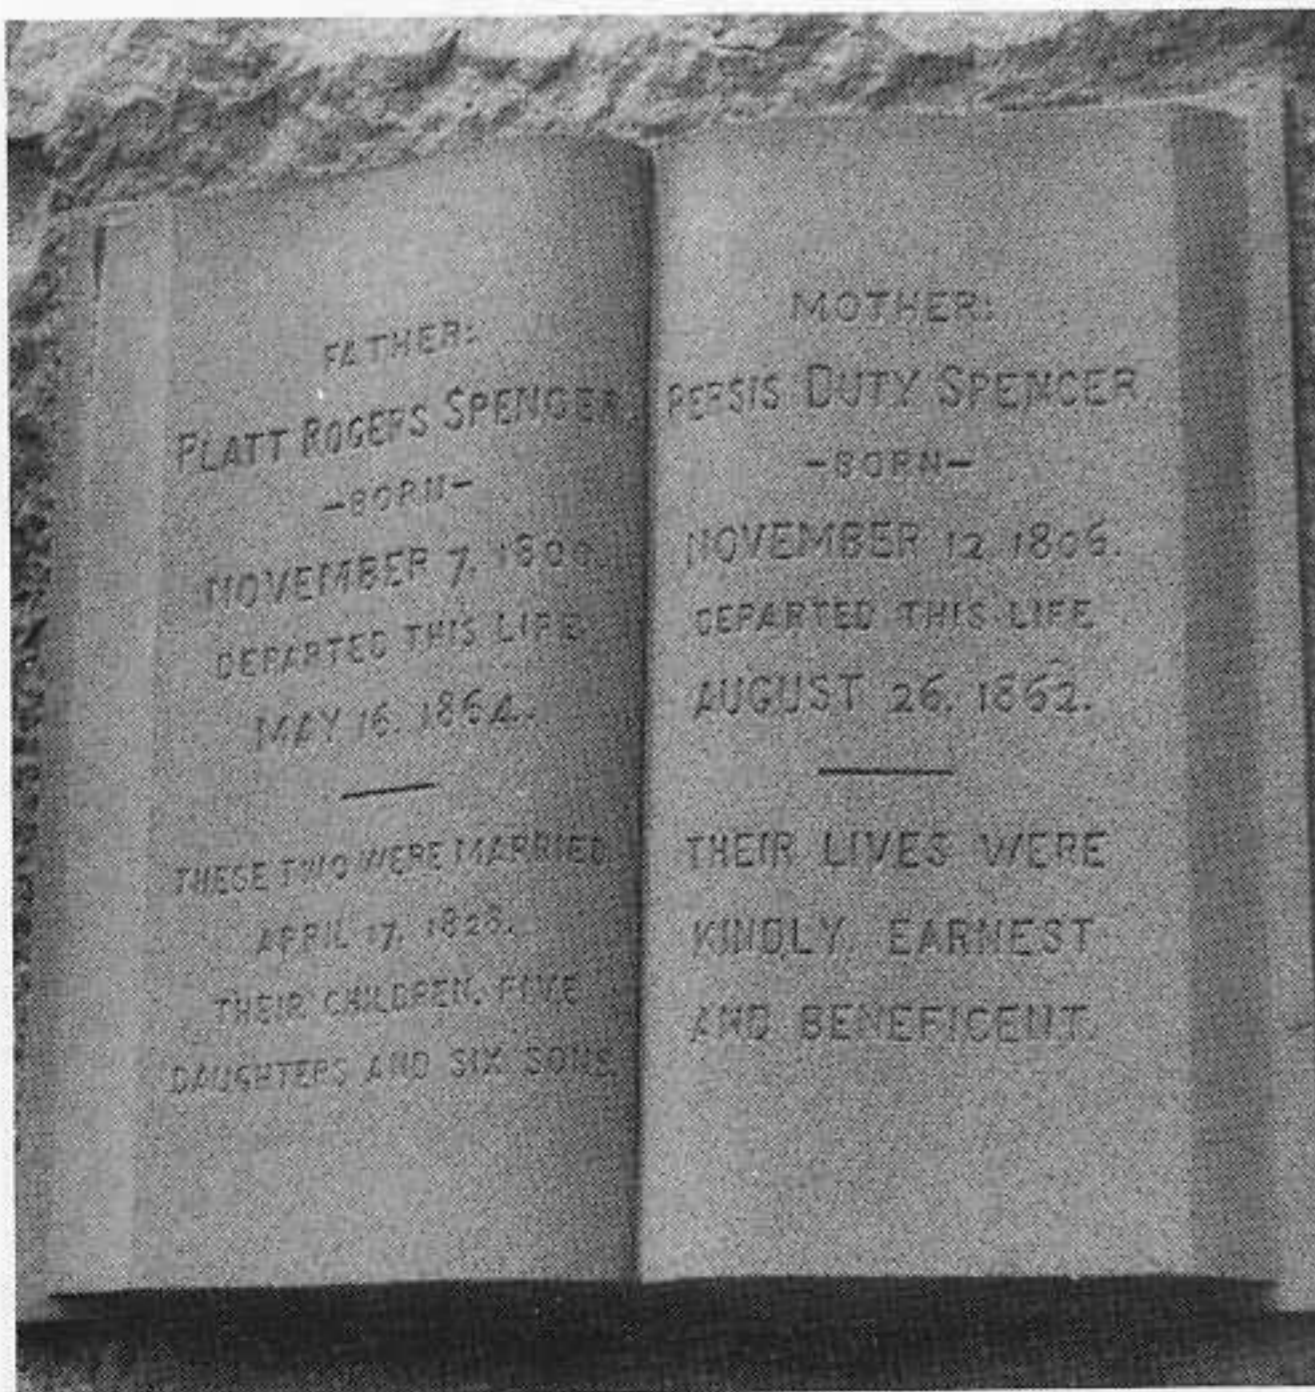 FATHER:
PLATT ROGERS SPENCER
-BORN-
NOVEMBER 7, 1800.
DEPARTED THIS LIFE
MAY 16, 1864.
THESE TWO WERE MARRIED
APRIL 17, 1828.
THEIR CHILDREN, FIVE
DAUGHTERS AND SIX SONS.
MOTHER:
PERSIS DUTY SPENCER.
-BORN-
NOVEMBER 12 1806.
DEPARTED THIS LIFE
AUGUST 26, 1862.
THEIR LIVES WERE
KINDLY, EARNEST
AND BENEFICENT.